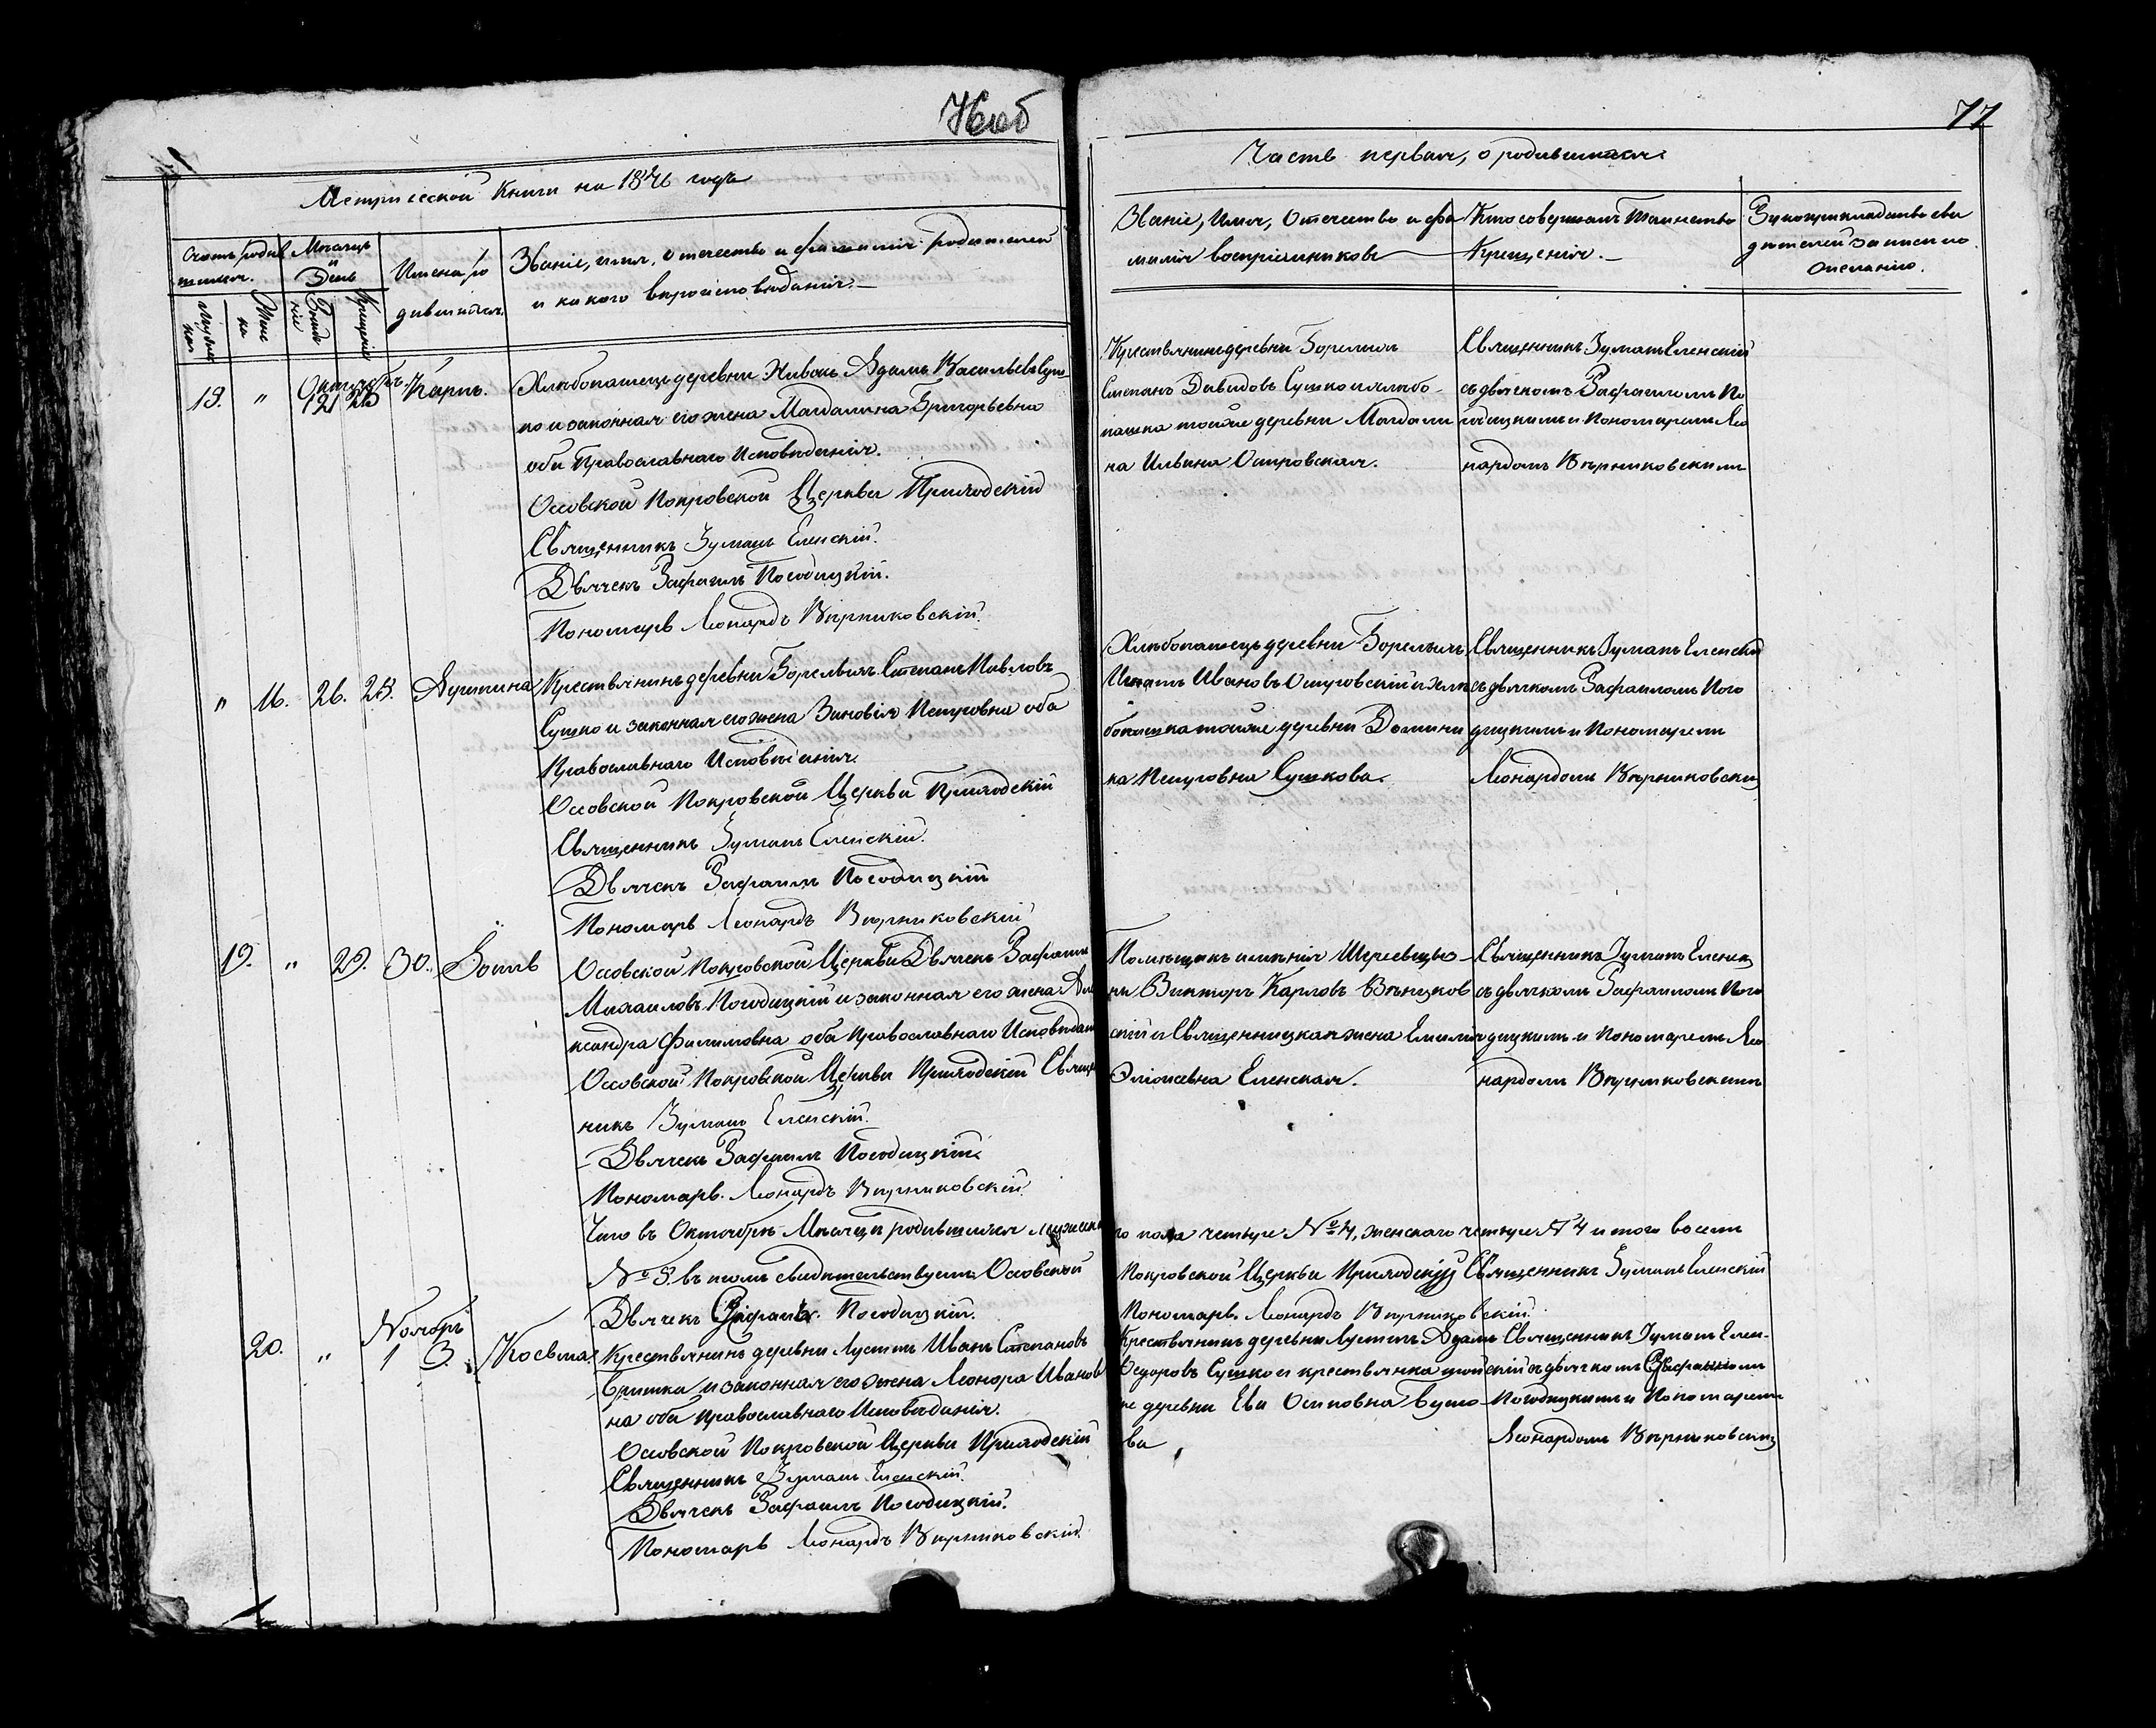 77
Метрической Книги на 1846 годъ
Часть первая, о родившихся
Счетъ родив
шихся.
Мѣсяцъ
и
День
Имена ро
дившихся.
Званіе, имя, отечество и фамилія родителей
и какого вѣроисповѣданія.
Званіе, Имя, Отечество и фа
милія воспріемниковъ
Кто совершалъ Таинство
Крещенія.
Рукоприкладство сви
дѣтелей записи по
желанію.
Октябрь
Карпъ.
Хлѣбопашецъ деревни Хивокъ Адамъ Васильевъ Суш-
ко и законная его жена Магдалина Григорьевна
оба Православнаго Исповѣданія.
Оссовской Покровской Церкви Приходскій
Священникъ Еленскій.
Дьячекъ Рафаилъ Погодицкій.
Пономарь Леонардъ Вѣрниковскій.
Крестьянинъ деревни
Степанъ Давидовъ Сушко и хлѣбо-
пашка тойже деревни Магдали
на Ильина Островская.
Священникъ Елснскій
съ дьячкомъ Рафаиломъ По
годицкимъ и Пономаремъ Лео
нардомъ Вѣрниковскимъ
" 16. 26. 28. Крестьянинъ деревни Степанъ Павловъ
Сушко и законная его жена Зиновія Петровна оба
Православнаго Исповѣданія.
Оссовской Покровской Церкви Приходскій
Священникъ Еленскій.
Дьячекъ Рафаилъ Погодицкій
Пономарь Леонардъ Вѣрниковскій
Хлѣбопашецъ деревни
Игнатъ Ивановъ Островскій и хлѣ
бопашка тойже деревни Домини
ка Петровна Сушкова.
Священникъ Еленскій
съ дьячкомъ Рафаиломъ Пого
дицкимъ и Пономаремъ
Леонардомъ Вѣрниковским
19. " 29. 30. Оссовской Покровской Церкви Дьячекъ Рафаилъ
Михаиловъ Погодицкій и законная его жена Але
ксандра Филимовна оба Православнаго Исповѣдан
Оссовской Покровской Церкви Приходскій Свяще
никъ Еленскій.
Дьячекъ Рафаилъ Погодицкій.
Пономарь Леонардъ Вѣрниковскій.
Помѣщикъ имѣнія
Викторъ Карловъ
скій и Священницкая жена Емилія
Еленская.
Священникъ Еленск
съ дьячкомъ Рафаиломъ Пого
дицкимъ и Пономаремъ Лео
нардомъ Вѣрниковскимъ
Что въ Октябрѣ Мѣсяцѣ родившихся мужска
го пола четыре № 4, женскаго четыре № 4 и того восемь
№ 8. въ томъ свидѣтельствуемъ Оссовской
Покровской Церкви Приходскій Священникъ Еленскій
Дьячекъ Рафаилъ Погодицкій.
Пономарь Леонардъ Вѣрниковскій.
Ноябрь
20. " 1 3. Косьма. Крестьянинъ деревни Лустичъ Иванъ Степановъ
и законная его жена Леонора Иванов
на оба Православнаго Исповѣданія.
Оссовской Покровской Церкви Приходскій
Священникъ Еленскій.
Дьячекъ Рафаилъ Погодицкій.
Пономарь Леонардъ Вѣрниковскій.
Крестьянинъ деревни Лустичъ Адамъ
Федоровъ Сушко и крестьянка той
же деревни Ева Осиповна
ва
Священникъ Елен-
скій съ дьячкомъ Рафаиломъ
Погодицкимъ и Пономаремъ
Леонардомъ Вѣрниковским